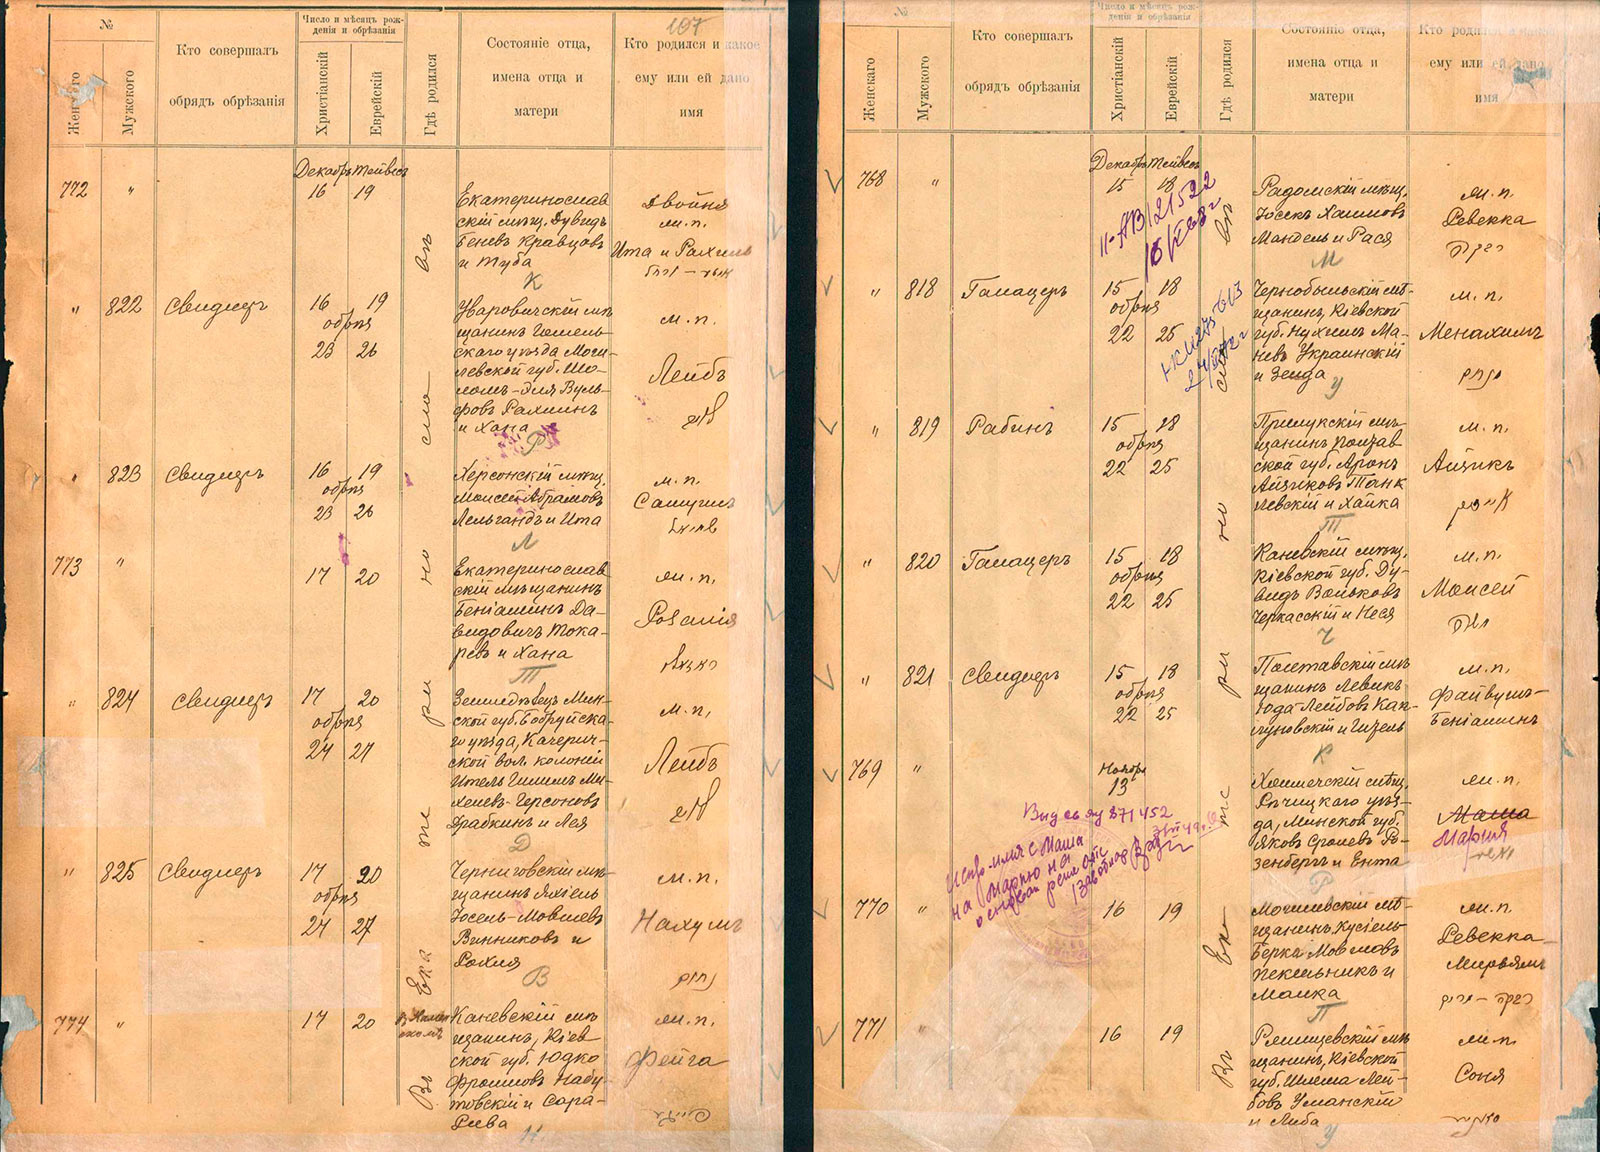 107
№
Женского
Мужского
Кто совершалъ
обрядъ обрѣзанія
Число и мѣсяцъ рож-
денія и обрѣзанія
Христіанскій
Еврейскій
Гдѣ родился
Состояніе отца,
имена отца и
матери
Кто родился и какое
ему или ей дано
имя
Декабр Тейвес
772 " 16 19
Екатеринослав
скій мѣщ. Дувидъ
Беневъ Кравцовъ
и Туба
К
Двойня
м.п.
Ита и Рахиль
" 822 Свидлеръ 16 19
обрѣз
23 26
Уваровичскій мѣ
щанинъ Гомель-
скаго уѣзда Моги-
левской губ. Шо-
ломъ-Эля Вуль-
фовъ Рахлинъ
и Хана
Р
м.п.
Лейбъ
" 823 Свидлеръ 16 19
обрѣз
23 26
Херсонскій мѣщ.
Моисей Абрамовъ
и Ита
Л
м.п.
Самуилъ
773 " 17 20
Екатеринослав
скій мѣщанинъ
Беніаминъ Да-
видовичъ Тока-
ревъ и Хана
Т
м.п.
Розалія
" 824 Свидлеръ 17 20
обрѣз
24 27
Земледѣлецъ Мин-
ской губ. Бобруйска-
го уѣзда, Качерич-
ской вол. колоніи
Михелевъ-Герсоновъ
Драбкинъ и Лея
Д
м.п.
Лейбъ
" 825 Свидлеръ 17 20
обрѣз
24 27
Черниговскій мѣ-
щанинъ Яхіель
Іосель-Мовшевъ
Винниковъ и
Рохля
В
м.п.
Нахумъ
774 " 17 20
Каневскій мѣ
щанинъ, Кіев
ской губ. Юдко
Фроимовъ Набу-
товскій и Сара-
Рива
Н.
м.п.
Фейга
Въ Ека те ри но сла въ
№
Женскаго
Мужского
Кто совершалъ
обрядъ обрѣзанія
Число и мѣсяцъ рож-
денія и обрѣзанія
Христіанскій
Еврейскій
Гдѣ родился
Состояніе отца,
имена отца и
матери
Кто родился и какое
ему или ей дано
имя
Декабр Тейвес
768 " 15 18
Радомскій мѣщ.
Іосекъ Хаимовъ
Мандель и Рася
М
м.п.
Ревекка
רבקה
" 818 Галацеръ 15 18
обрѣз
22 25
Чернобыльскій мѣ
щанинъ, Кіевской
губ. Нухимъ Ма-
невъ Украинскій
и Зенда
У
м.п.
Менахимъ
" 819 Рабинъ 15 18
обрѣз
22 25
Прилукскій мѣ
щанинъ Полтав
ской губ. Аронъ
Айзиковъ Танк
левскій и Хайка
Т
м.п.
Айзикъ
" 820 Галацеръ 15 18
обрѣз
22 25
Каневскій мѣщ.
Кіевской губ. Ду-
видъ Вольковъ
Черкасскій и Неся
Ч
м.п.
Моисей
" 821 Свидлеръ 15 18
обрѣз
22 25
Полтавскій мѣ
щанинъ Левикъ
Юда-Лейбовъ Кап-
луновскій и Гизель
К
м.п.
Файвушъ-
Беніаминъ
769 "
Ноябр
13
Хоймечскій мѣщ.
Рѣчицкаго уѣз-
да, Минской губ.
Яковъ Сролевъ Ро-
зенбергъ и Ента
Р
м.п.
Маша
Мария
Испр. имя с Маша
на Марию на
основан реш
770 " 16 19
Могилевскій мѣ-
щанинъ, Кусіель-
Берка Мовшовъ
Пекельникъ и
Малка
П
м.п.
Ревекка-
Мирьямъ
771 " 16 19
Ржищевскій мѣ
щанинъ, Кіевской
губ. Шлема Лей-
бовъ Уманскій
и Либа
У
м.п.
Соня
Въ Ека те ри но сла въ